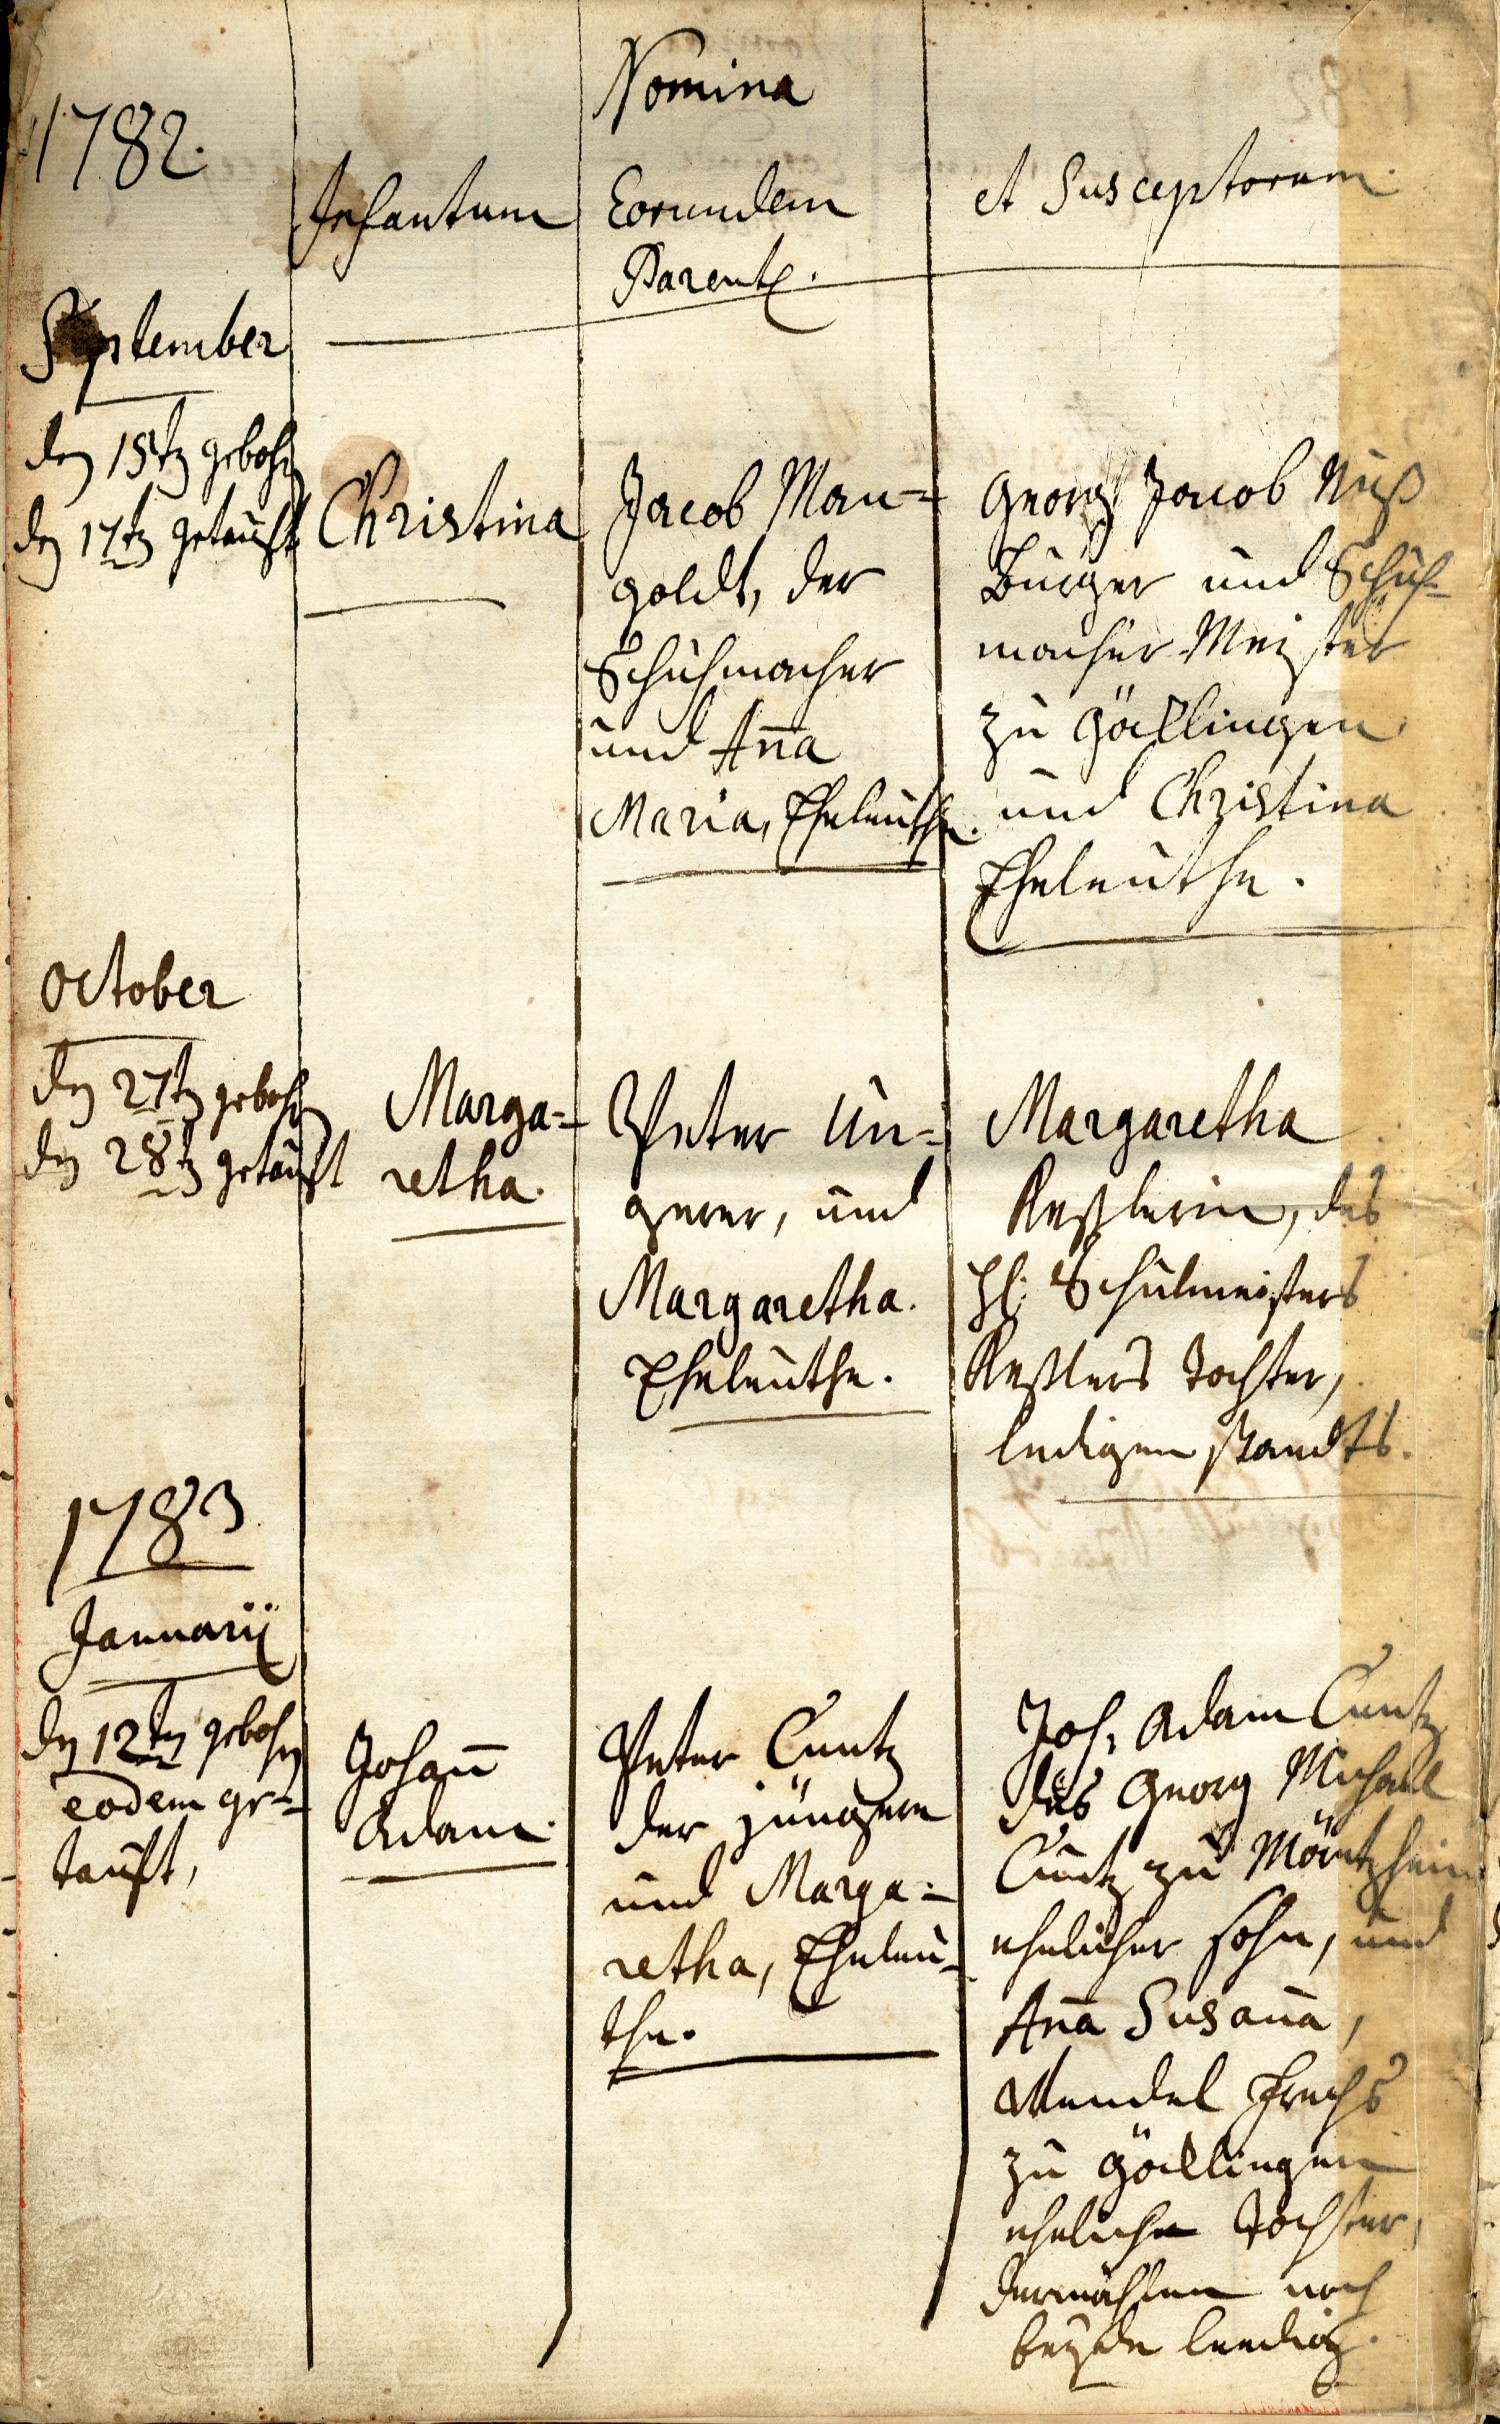 Nomina
1782.
Infantum
Eorundem
Parent.
et Susceptorum.
September
den 15tn gebohrn
den 17tn getaufft
Christina
Jacob Man=
goldt, der
Schuhmacher
und Anna
Maria, Eheleuthe.
Georg Jacob Nuß
Burger und Schuh=
macher Meister
zu Göcklingen
und Christina
Eheleuthe.
October
den 27tn gebohrn
den 28tn getaufft
Marga=
retha.
Peter Un=
gerer, und
Margaretha.
Eheleuthe.
Margaretha
Keßlerin, des
H: Schulmeisters
Keßlers Tochter,
ledigen standts.
1783
Januarij
den 12tn gebohrn
eodem ge=
tauft,
Johann
Adam.
Peter Cuntz
der jüngere
und Marga=
retha, Eheleu=
the.
Joh: Adam Cuntz
des Georg Michael
Cuntz zu Möntzheim
ehelicher Sohn, und
Anna Susanna,
Wendel Frechs
zu Göcklingen
eheliche Tochter,
dermahlen noch
beyde leedig.